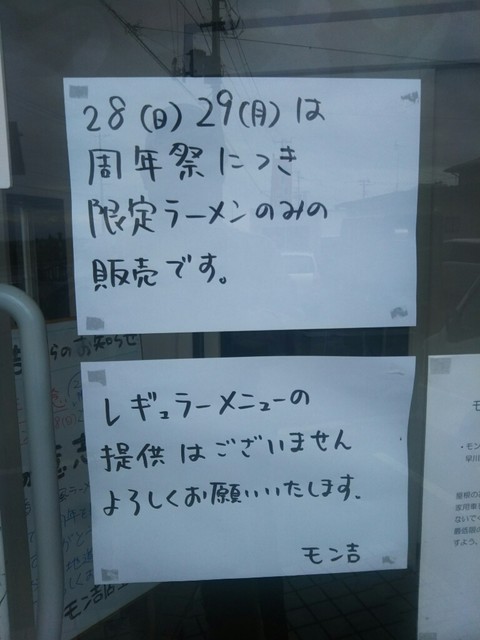 28(日)29(月)は
周年祭につき
限定ラーメンのみの
販売です。
レギュラーメニューの
提供はございません
よろしくお願いいたします.
モン吉
らのお知らせ
モン吉店
・モン
早川
屋根の
ないで
最低限
すよう。